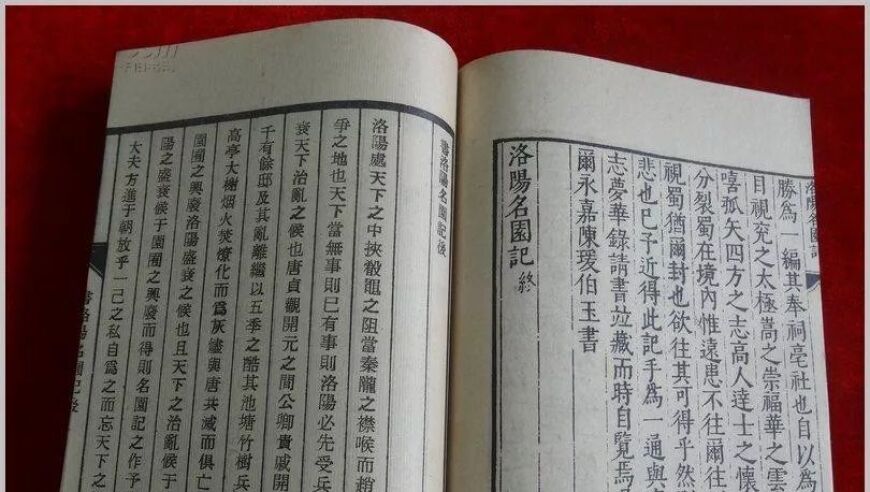 洛陽名園記
勝爲一編其奉祠亳社也自以爲
目視兖之太極嵩之崇福華之雲
嘻孤矢四方之志高人達士之懷
分裂蜀在境內惟遠患不往爾往
視蜀猶爾封也欲往其可得乎然
悲也已予近得此記手爲一通與
志夢華錄請書竝藏而時自覽焉
爾永嘉陳瑗伯玉書
洛陽名園記 終
書洛陽名園記後
洛陽處天下之中挾殽黽之阻當秦隴之襟喉而趙
爭之地也天下當無事則已有事則洛陽必先受兵
衰天下治亂之候也唐貞觀開元之間公卿貴戚開
千有餘邸及其亂離繼以五季之酷其池塘竹樹兵
高亭大榭烟火焚燎化而爲灰燼與唐共滅而俱亡
園囿之興廢洛陽盛衰之候也且天下之治亂候于
陽之盛衰候于園囿之興廢而得則名園記之作予
大夫方進于朝放乎一己之私自爲之而忘天下之
書洛陽名園記後